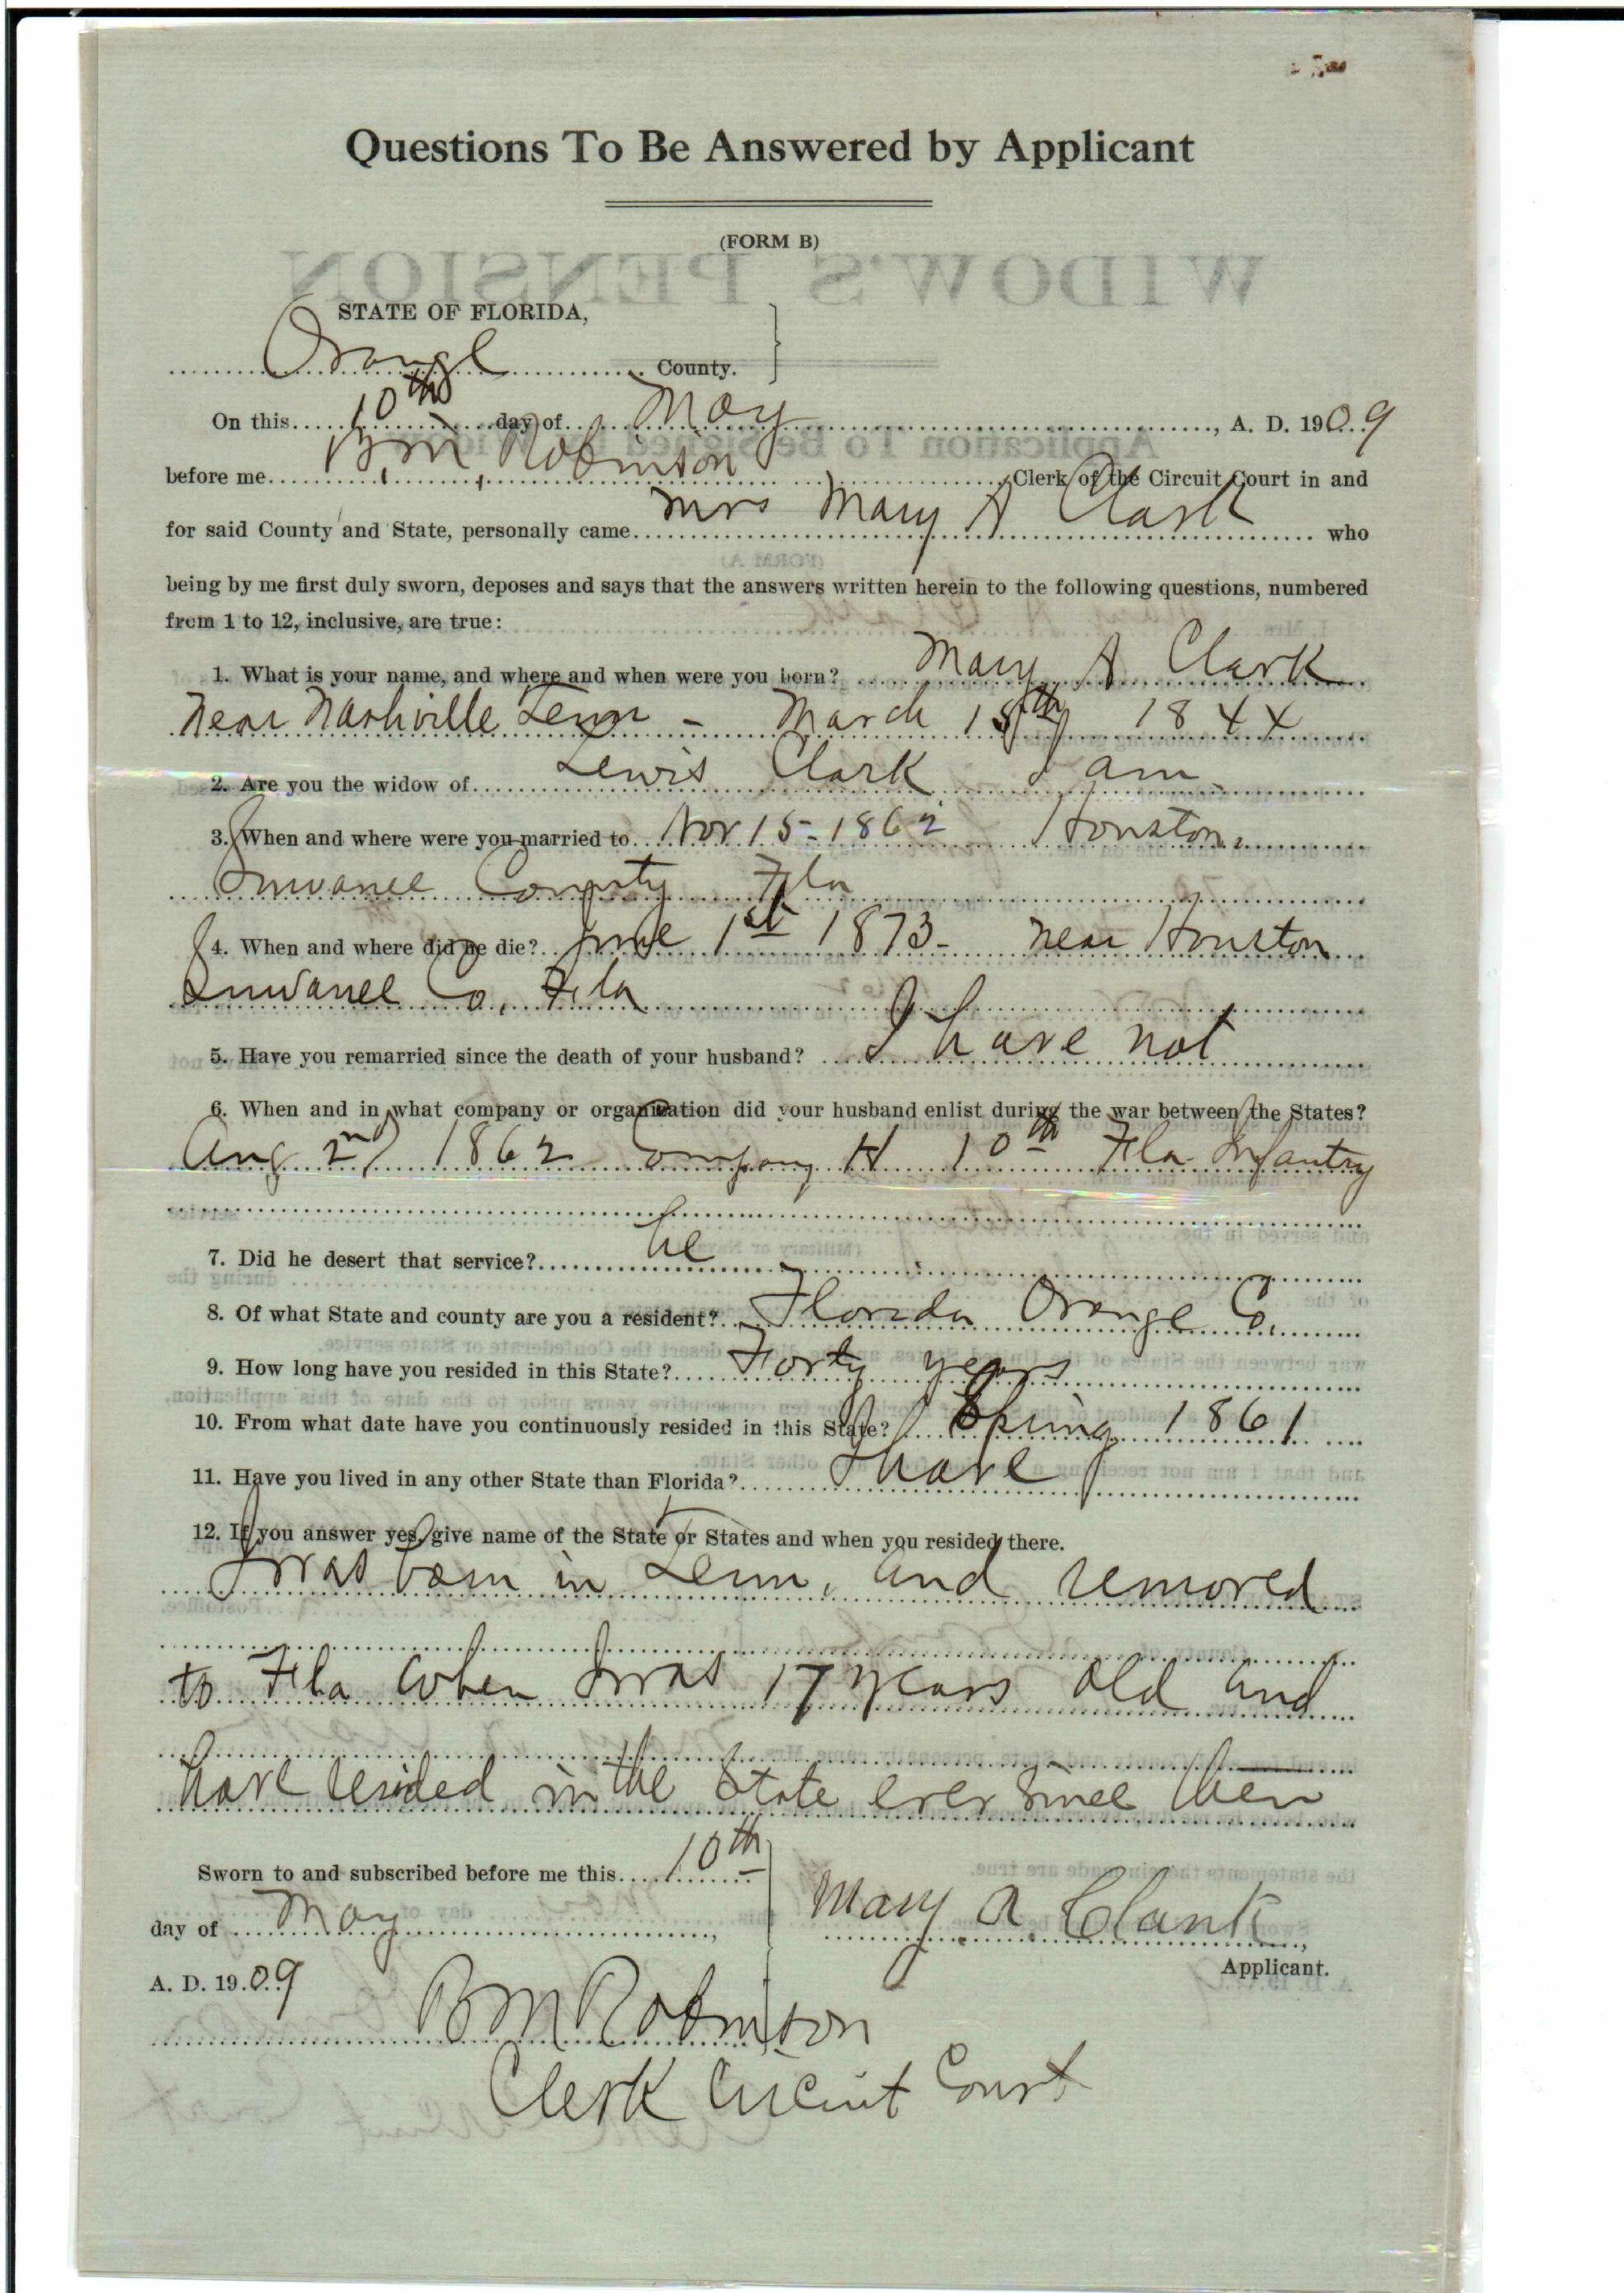 Questions To Be Answered by Applicant
(FORM B)
STATE OF FLORIDA,
Orange County.
On this 10th day of May, A. D. 1909
before me B. M. Robinson Clerk of the Circuit Court in and
for said County and State, personally came Mrs Mary A Clark who
being by me first duly sworn, deposes and says that the answers written herein to the following questions, numbered
from 1 to 12, inclusive, are true:
1. What is your name, and where and when were you born? Mary A Clark
Near Nashville Tenn - March 15th 1844
2. Are you the widow of Lewis Clark I am
3. When and where were you married to Nov 15-1862 Houston,
Suwanee County Fla
4. When and where did he die? June 1st 1873- near Houston
Suwanee Co, Fla
5. Have you remarried since the death of your husband? I have not
6. When and in what company or organization did your husband enlist during the war between the States?
Aug 2nd 1862 Company H 10th Fla Infantry
7. Did he desert that service?
8. Of what State and county are you a resident? Florida Orange Co.
9. How long have you resided in this State? Forty years
10. From what date have you continuously resided in this State? Spring 1861
11. Have you lived in any other State than Florida? I have
12. If you answer yes, give name of the State or States and when you resided there.
I was born in Tenn, and removed
to Fla when I was 17 years old and
have resided in the State ever since then
Sworn to and subscribed before me this 10th
day of May,
Mary A Clark,
Applicant.
A. D. 1909
B M Robinson
Clerk Circuit Court